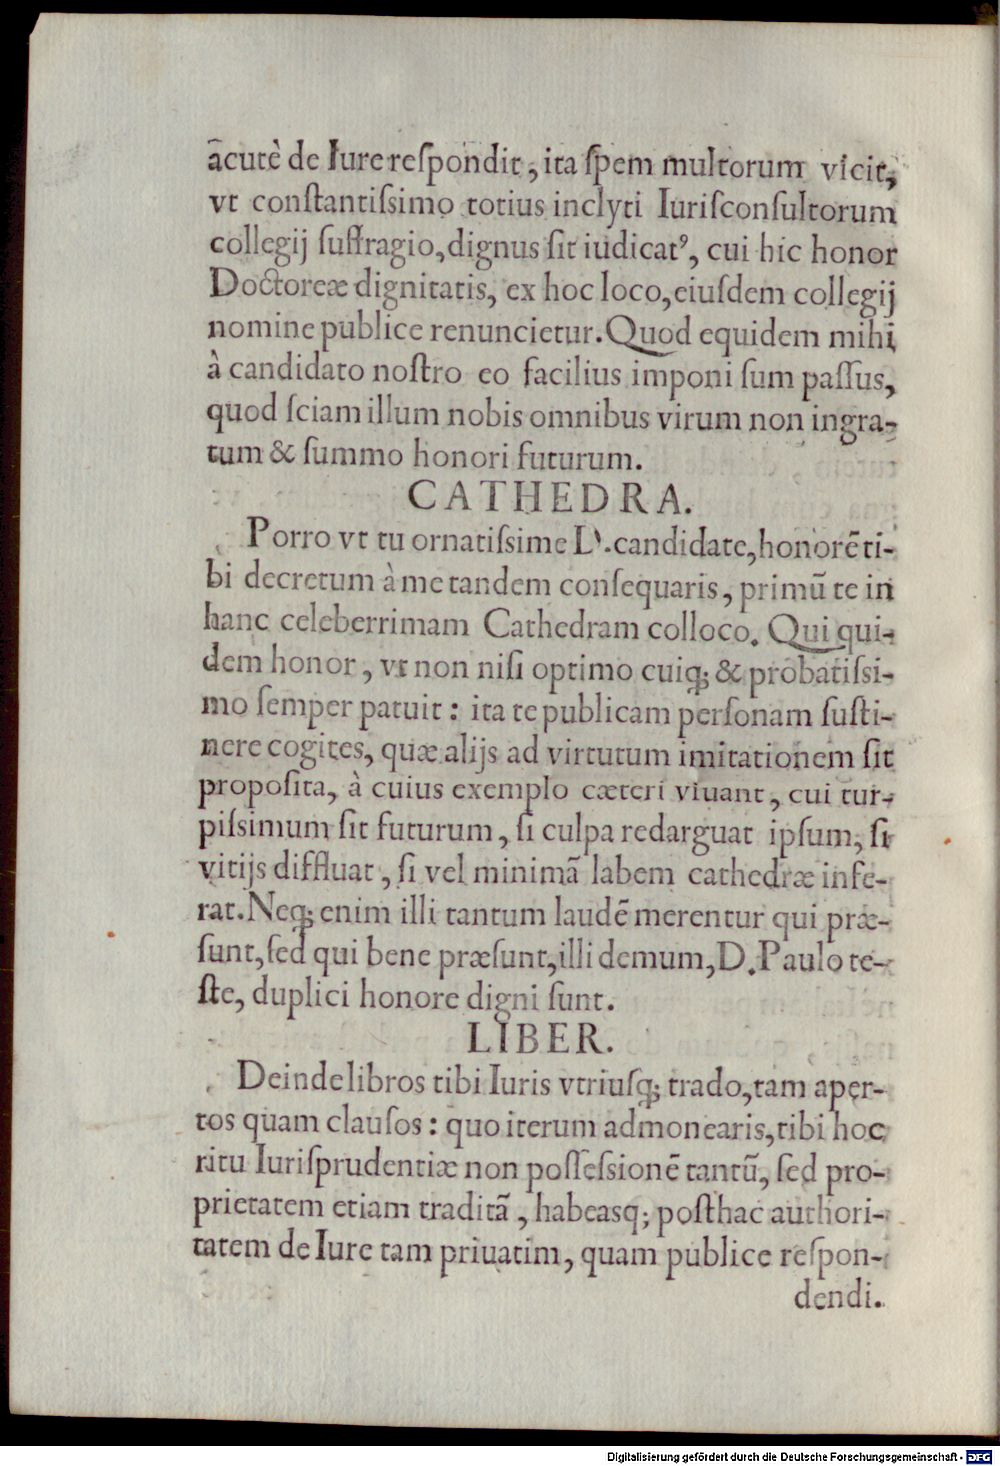 ācutè de Iure reſpondit, ita ſpem multorum vicit,
vt conſtantiſsimo totius inclyti Iuriſconſultorum
collegij ſuffragio, dignus ſit iudicatꝰ, cui hic honor
Doctoreæ dignitatis, ex hoc loco, eiuſdem collegij
nomine publice renuncietur. Quod equidem mihi
à candidato noſtro eo facilius imponi ſum paſſus,
quod ſciam illum nobis omnibus virum non ingra-
tum & ſummo honori futurum.
CATHEDRA.
Porro vt tu ornatiſsime D. candidate, honorē ti-
bi decretum à me tandem conſequaris, primū te in
hanc celeberrimam Cathedram colloco. Qui qui-
dem honor, vt non niſi optimo cuiq; & probatiſsi-
mo ſemper patuit: ita te publicam perſonam ſuſti-
nere cogites, quæ alijs ad virtutum imitationem ſit
propoſita, à cuius exemplo cæteri viuant, cui tur-
piſsimum ſit futurum, ſi culpa redarguat ipſum, ſi
vitijs diffluat, ſi vel minimā labem cathedræ infe-
rat. Neq; enim illi tantum laudē merentur qui præ-
ſunt, ſed qui bene præſunt, illi demum, D. Paulo te-
ſte, duplici honore digni ſunt.
LIBER.
Deinde libros tibi Iuris vtriuſq; trado, tam aper-
tos quam clauſos: quo iterum admonearis, tibi hoc
ritu Iuriſprudentiæ non poſſeſsionē tantū, ſed pro-
prietatem etiam traditā, habeasq; poſthac authori-
tatem de Iure tam priuatim, quam publice reſpon-
dendi.
Digitalisierung gefördert durch die Deutsche Forschungsgemeinschaft - DFG